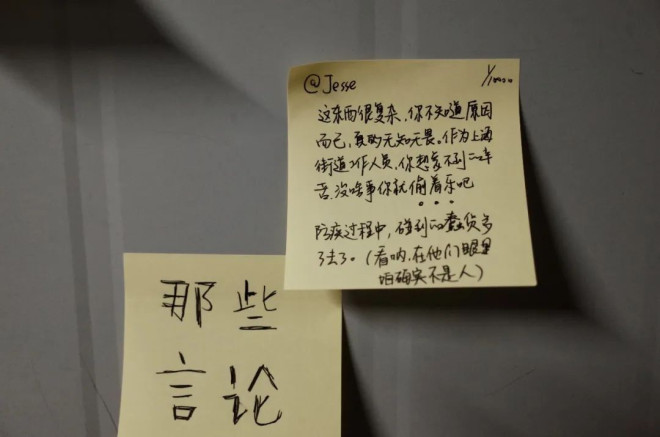 @Jesse
这东西很复杂,你不知道原因
而已,真的无知无畏。作为上海
街道工作人员,你想象不到的辛
苦,没啥事你就偷着乐吧
防疫过程中,碰到的蠢货多
了去了。(看呐,在他们眼里
咱确实不是人)
那些
言论